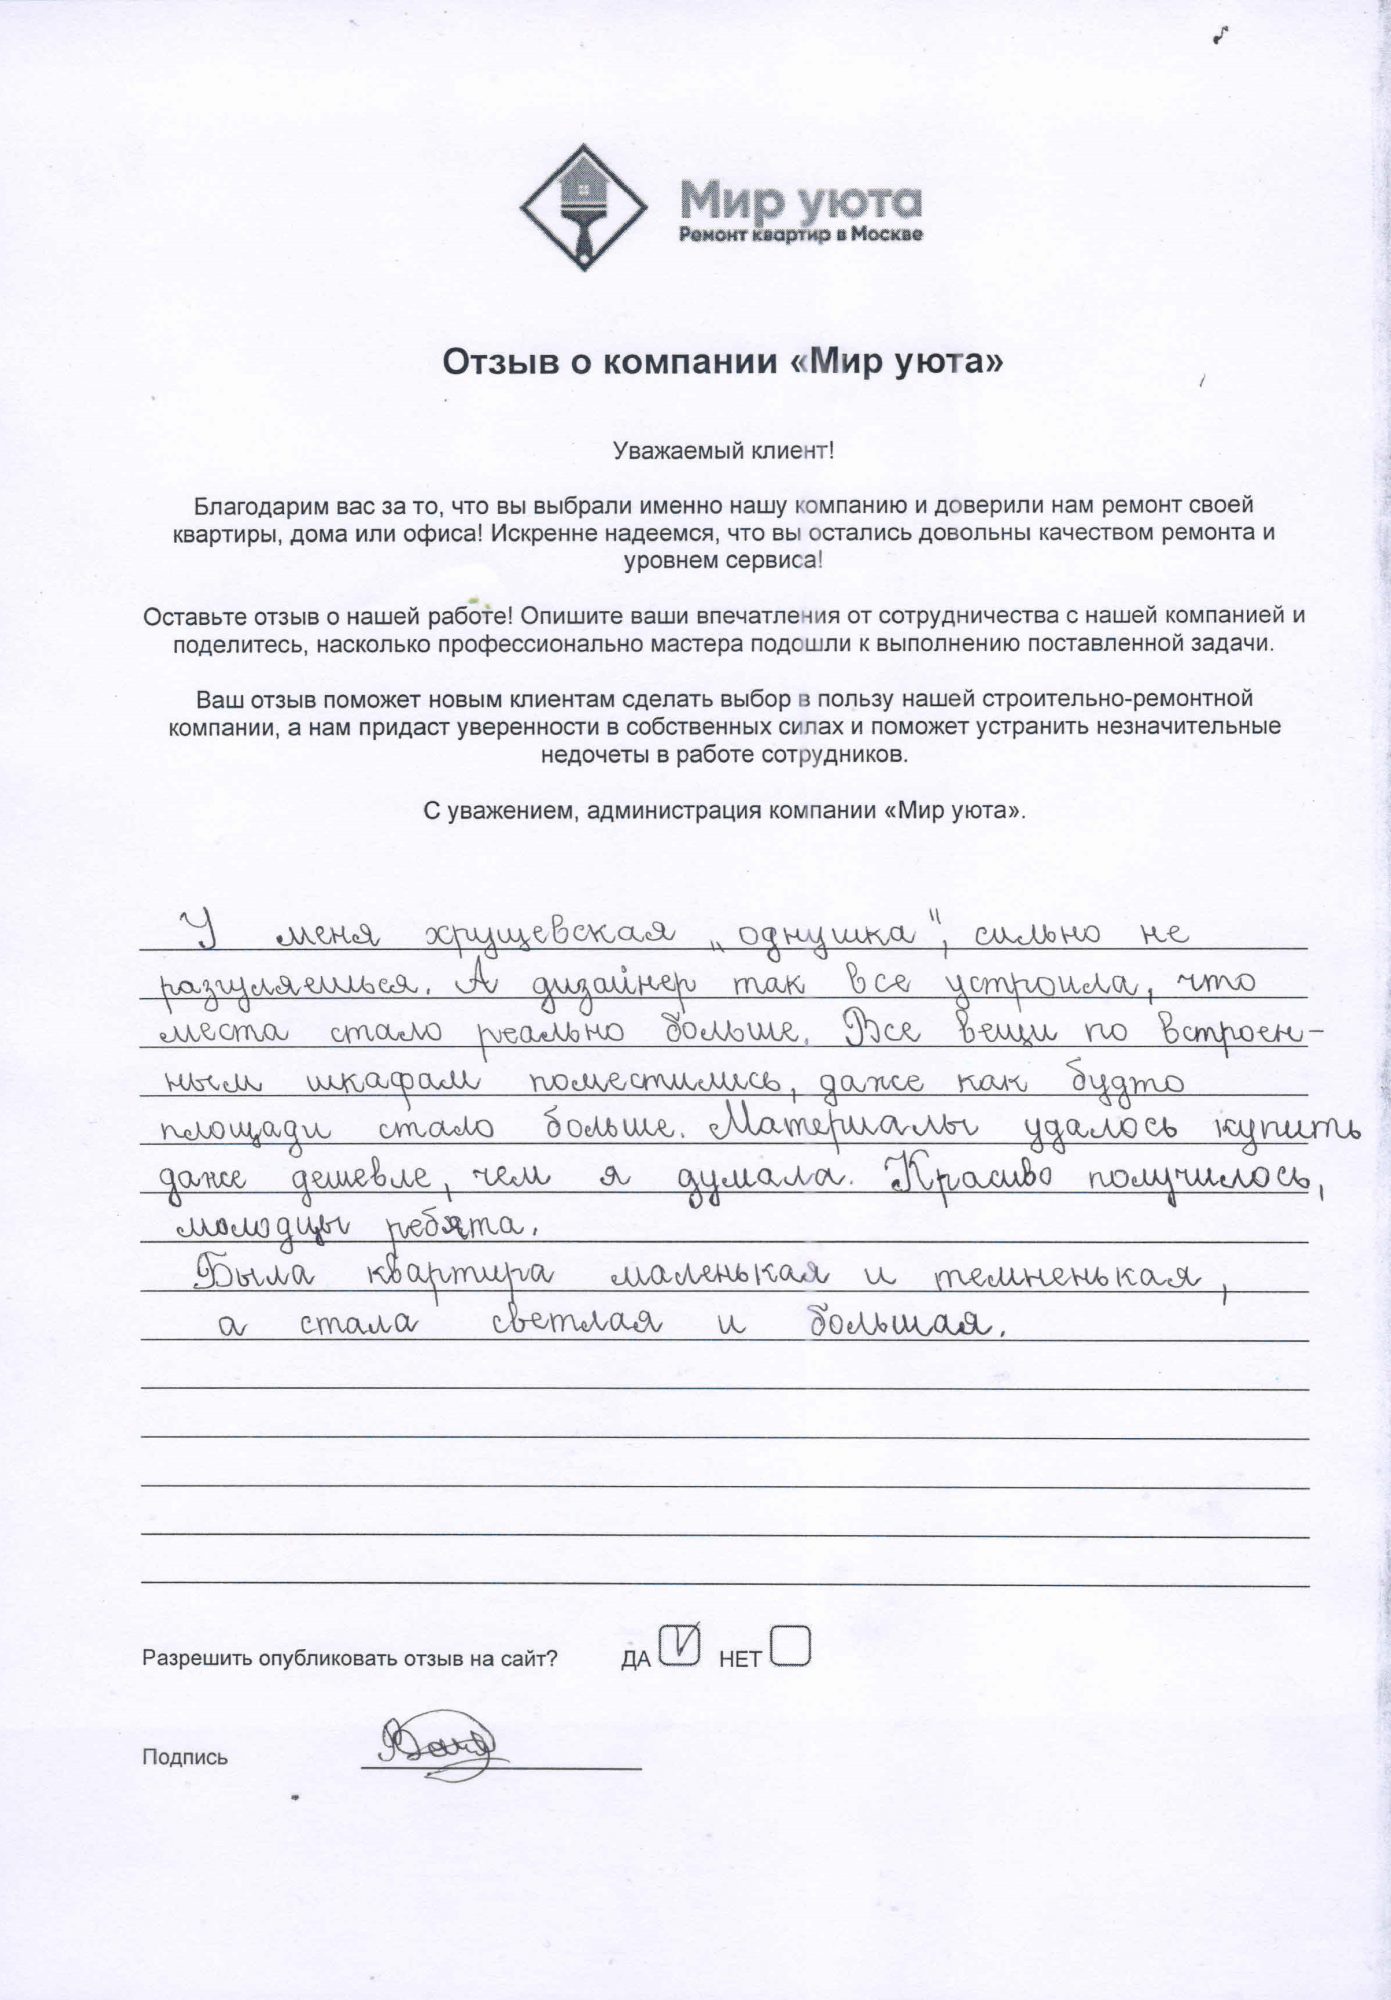 Мир уюта
Ремонт квартир в Москве
Отзыв о компании «Мир уюта»
Уважаемый клиент!
Благодарим вас за то, что вы выбрали именно нашу компанию и доверили нам ремонт своей
квартиры, дома или офиса! Искренне надеемся, что вы остались довольны качеством ремонта и
уровнем сервиса!
Оставьте отзыв о нашей работе! Опишите ваши впечатления от сотрудничества с нашей компанией и
поделитесь, насколько профессионально мастера подошли к выполнению поставленной задачи.
Ваш отзыв поможет новым клиентам сделать выбор в пользу нашей строительно-ремонтной
компании, а нам придаст уверенности в собственных силах и поможет устранить незначительные
недочеты в работе сотрудников.
С уважением, администрация компании «Мир уюта».
У меня хрущевская „однушка", сильно не
разгуляешься. А дизайнер так все устроила, что
места стало реально больше. Все вещи по встроен-
ным шкафам поместились, даже как будто
площади стало больше. Материалы удалось купить
даже дешевле, чем я думала. Красиво получилось,
молодцы ребята.
Была квартира маленькая и темненькая,
а стала светлая и большая.
Разрешить опубликовать отзыв на сайт? ДА НЕТ
Подпись